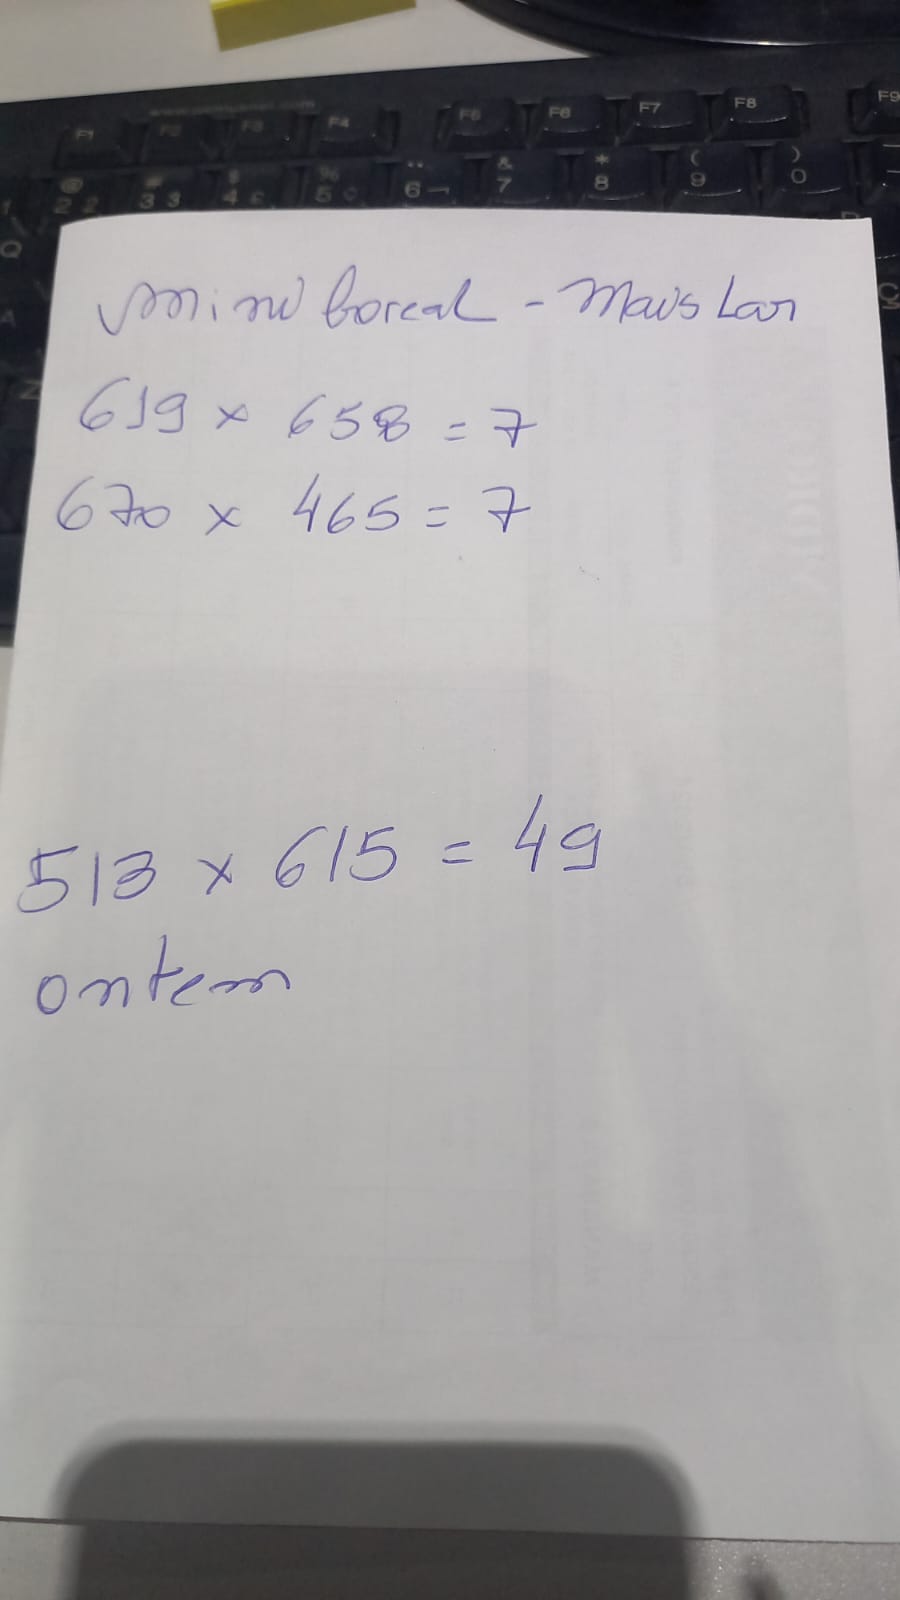 F1 F2 F3 F4 F5 F6 F7 F8 F9
mini boreal - Mais Lar
619 x 658 = 7
670 x 465 = 7
513 x 615 = 49
ontem